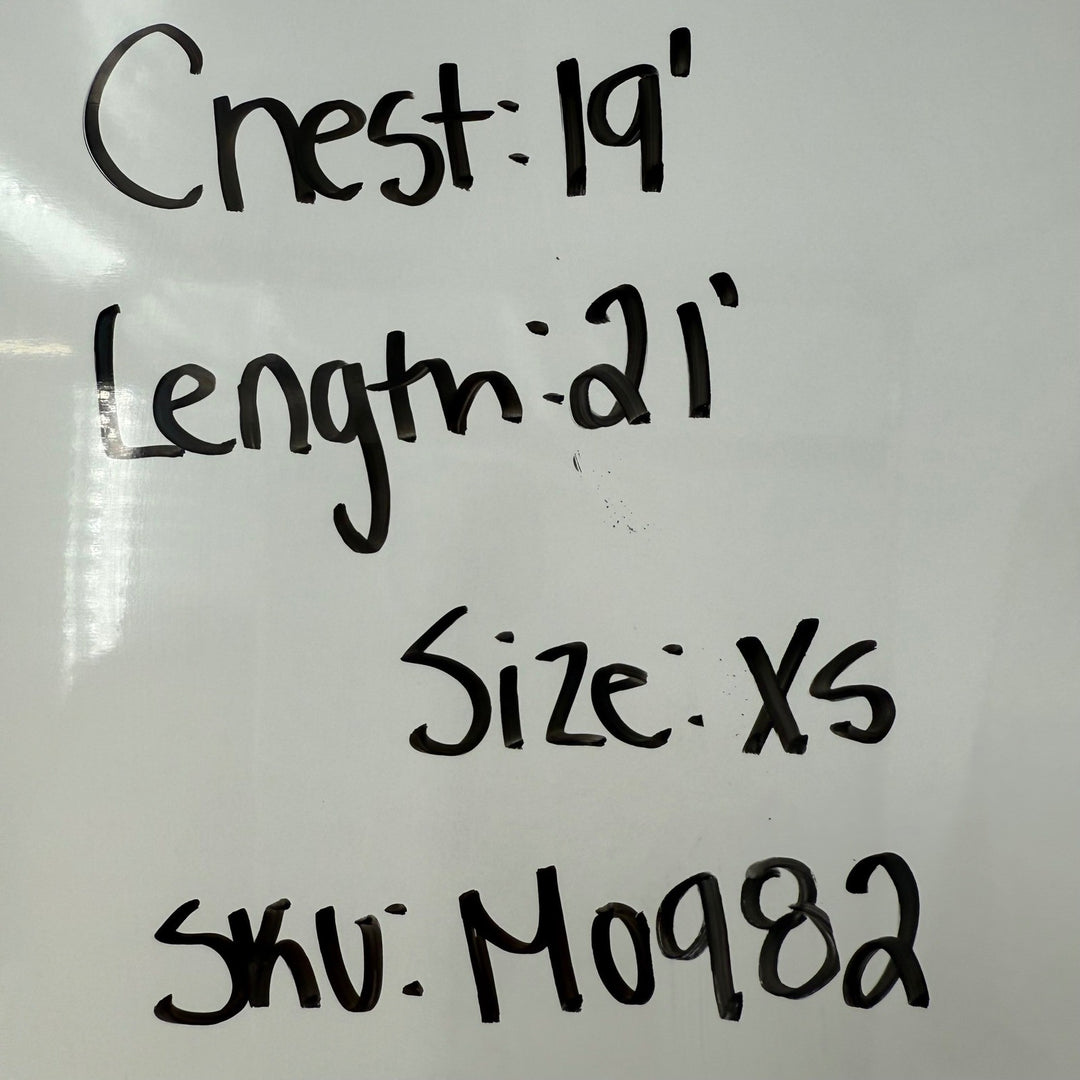 Chest: 19'
Length: 21'
Size: XS
SKU: M0982